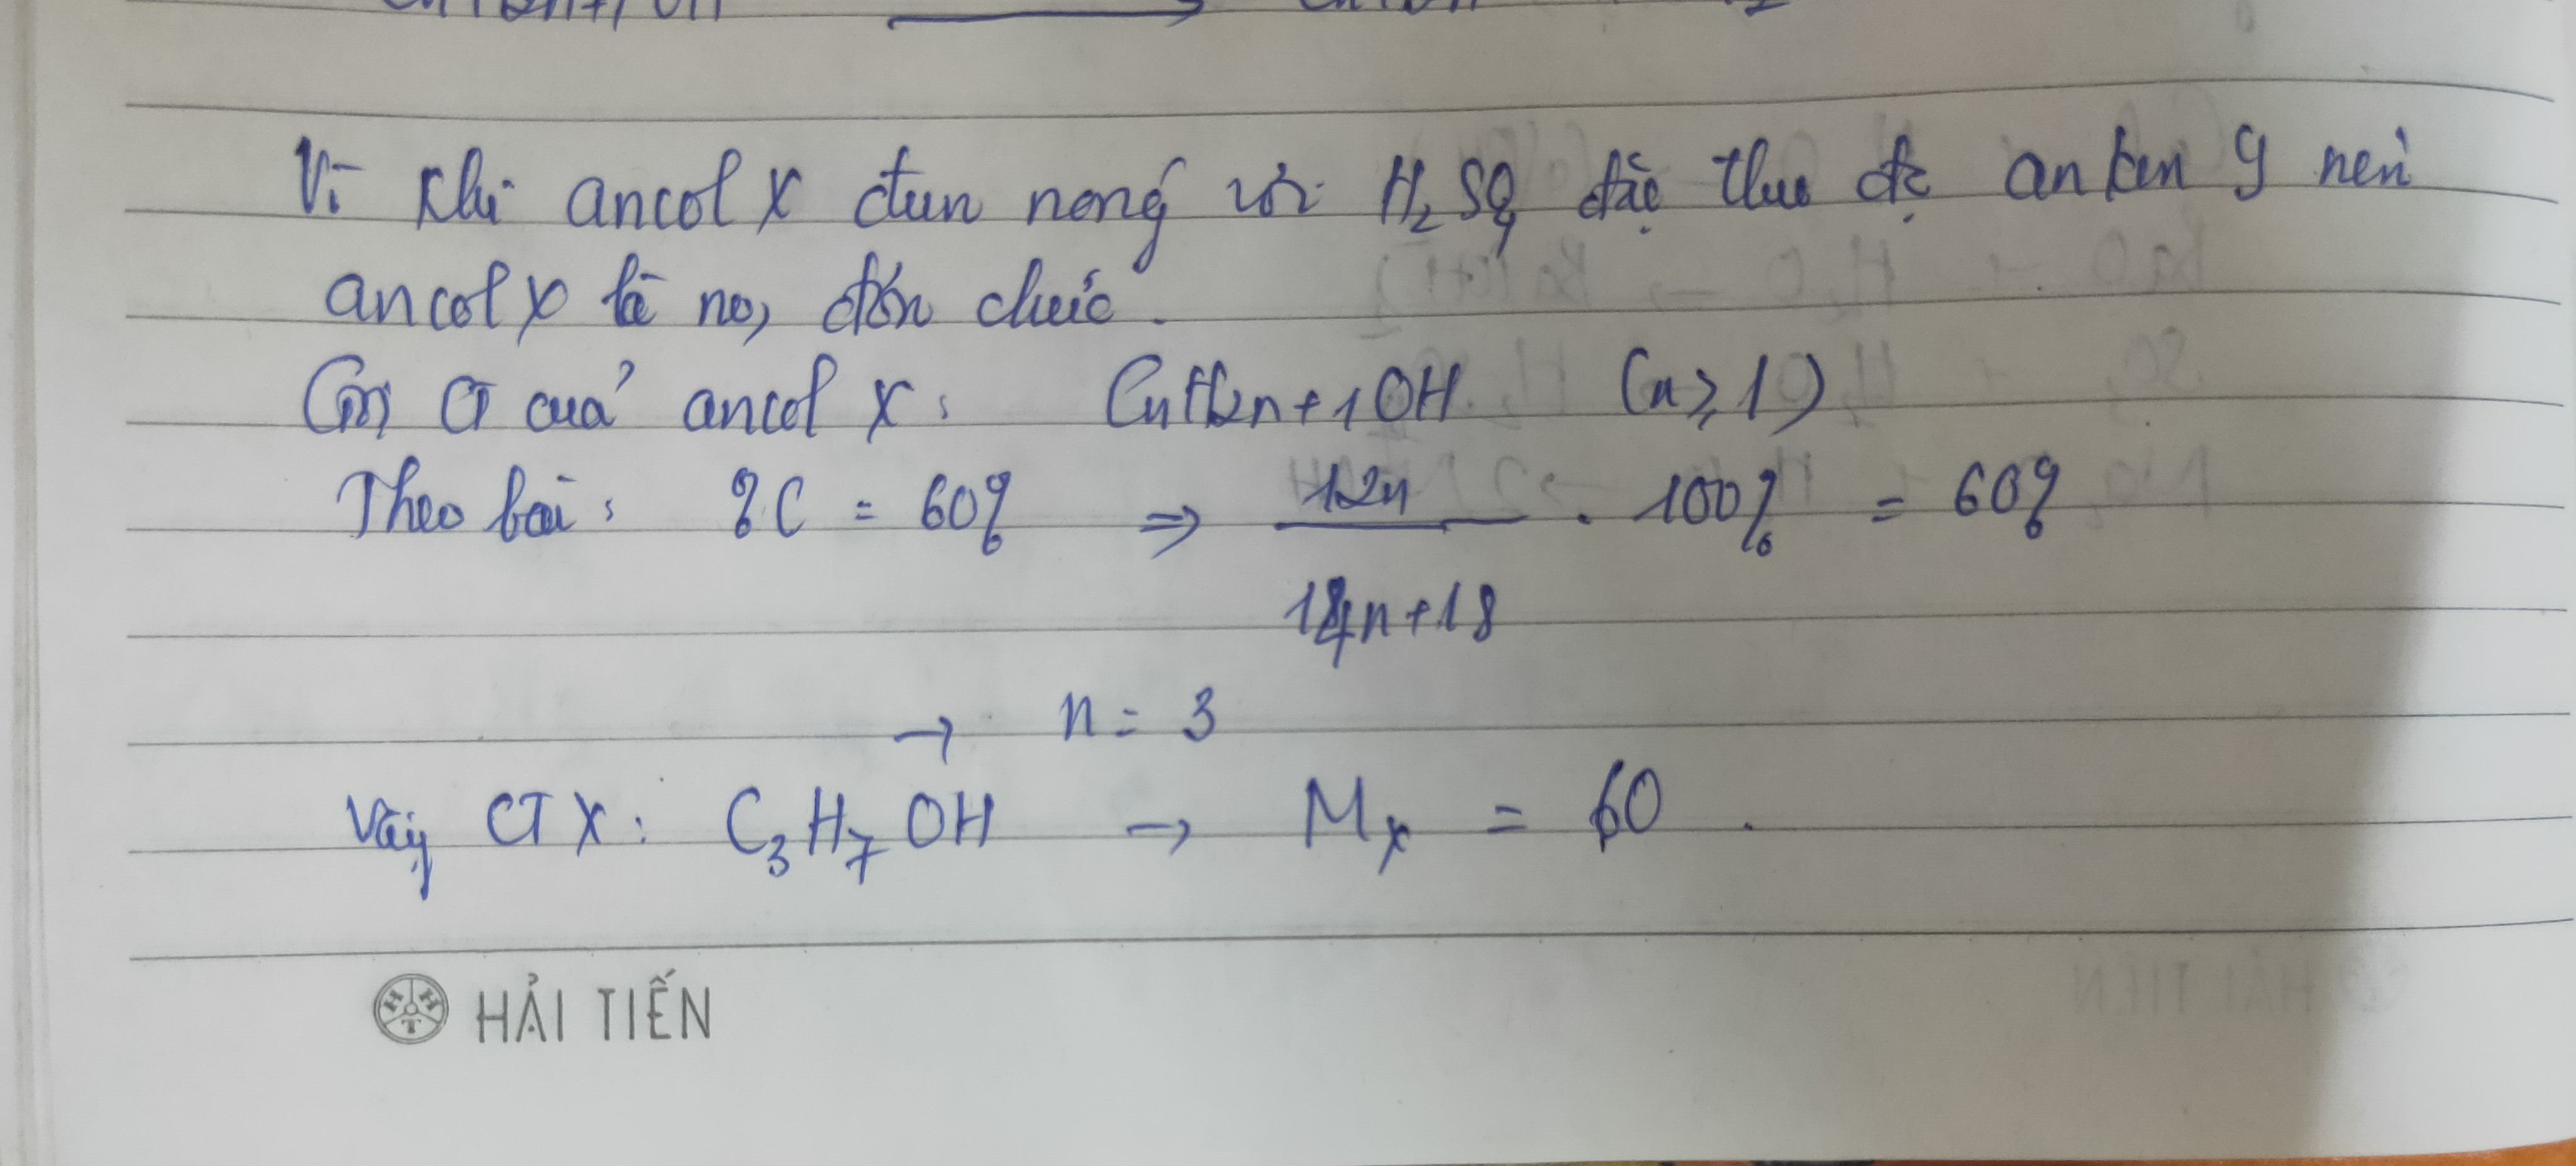 Vì khi ancol X đun nóng với H2SO4 đặc thu đc anken Y nên
ancol X là no, đơn chức.
Gọi CT của ancol X: CnH2n+1OH (n ≥ 1)
Theo bài: %C = 60% ⇒ 12n / 14n+18 . 100% = 60%
→ n = 3
Vậy CT X: C3H7OH → Mx = 60.
HẢI TIẾN